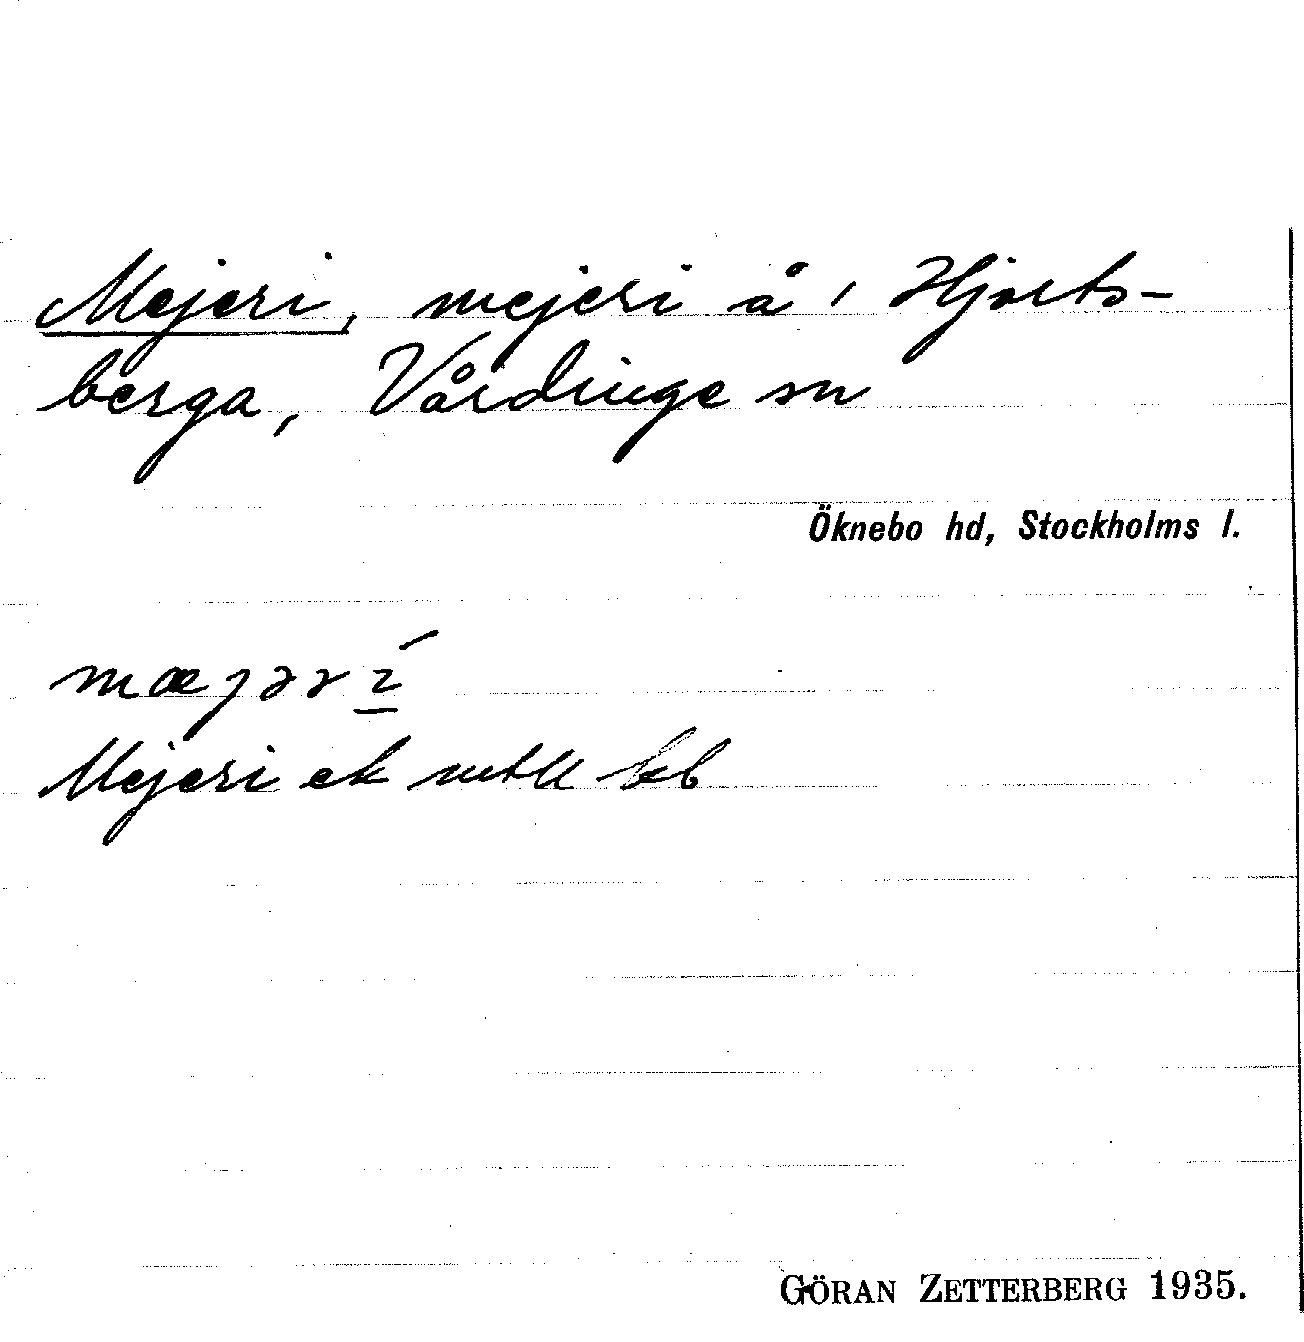 Mejeri, mejeri å 1 Hjorts-
berga, Vårdinge sn
Öknebo hd, Stockholms l.
mæjәrí
Mejeri ek kb
GÖRAN ZETTERBERG 1935.